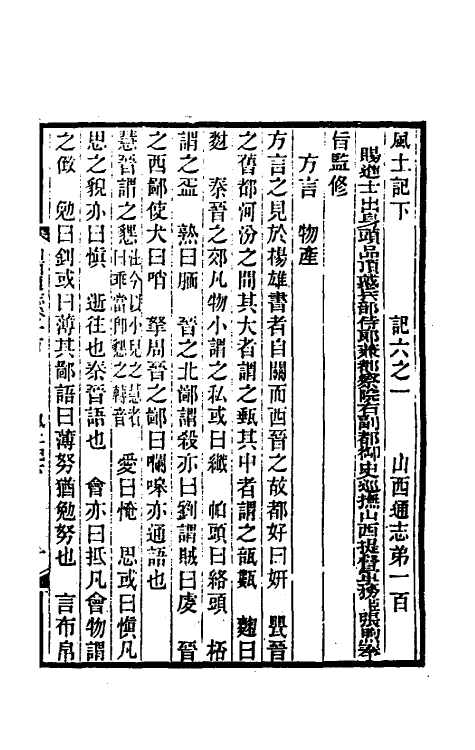 風土記下　記六之一　山西通志弟一百
賜進士出身頭品頂戴兵部侍郎兼都察院右副都御史巡撫山西提督軍務臣張煦奉
旨監修
方言　物產
方言之見於揚雄書者自關而西晉之故都好曰妍　甖晉
之舊都河汾之間其大者謂之甀其中者謂之瓿甊　麴曰
䴭　秦晉之郊凡物小謂之私或曰纖　帕頭曰絡頭　桮
謂之盃　熟曰胹　晉之北鄙謂殺亦曰劉謂賊曰虔　晉
之西鄙使犬曰哨　拏周晉之鄙曰囒哰亦通語也
慧晉謂之㦟 注今以小兒之慧者曰乖當卽㦟之轉音　愛曰㤿　思或曰慎凡
思之貌亦曰慎　逝往也秦晉語也　會亦曰抵凡會物謂
之㑂　勉曰釗或曰薄其鄙語曰薄努猶勉努也　言布帛